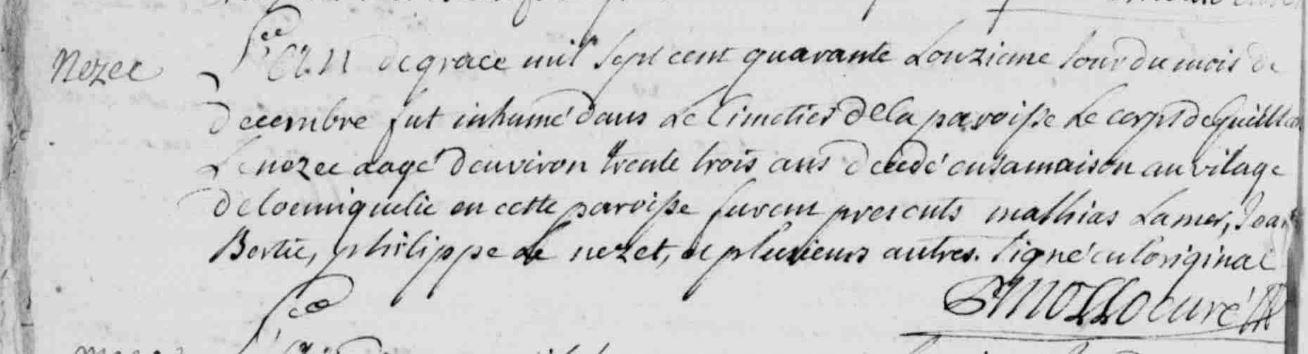 Nezec
L'an de grace mil sept cent quarante L'onzieme Jour du mois de
decembre fut inhumé dans Le Cimetier de la paroisse Le corps de Guill
Le nezec aagé d'environ trente trois ans decedé en sa maison au vilage
de locmiquelic en cette paroisse furent presents mathias Lamer, Jean
Bertic, philippe Le nezet, et plusieurs autres. signé en l'original
curé